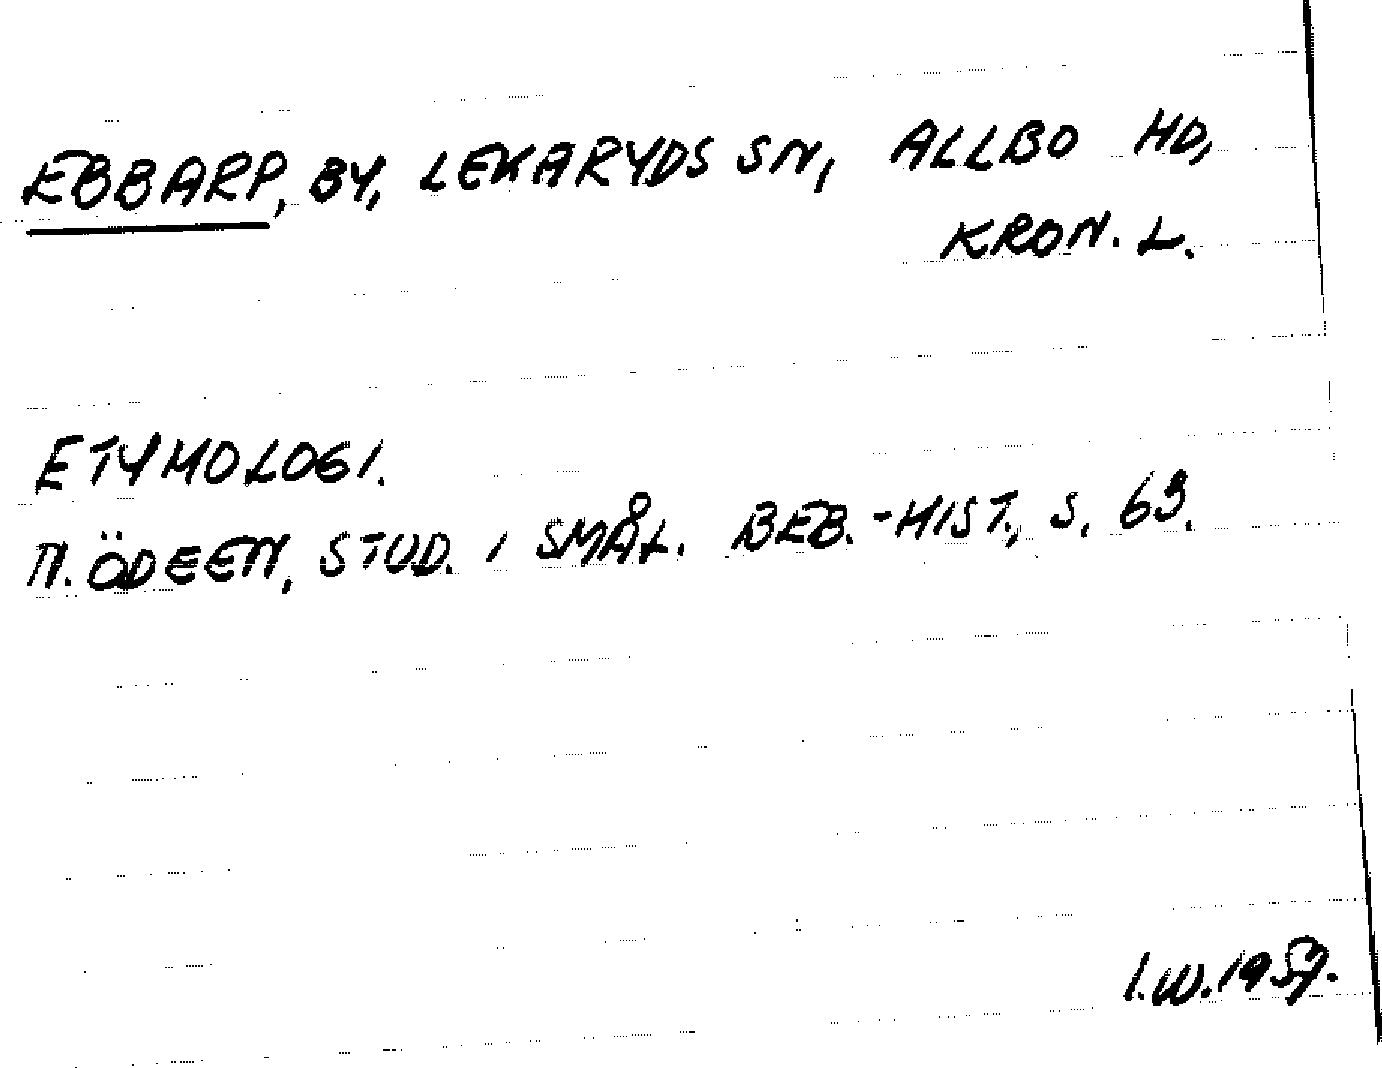 EBBARP, BY, LEKARYDS SN, ALLBO HD,
KRON. L.
ETYMOLOGI.
N. ÖDEEN, STUD. I SMÅL. BEB.-HIST., S. 63.
I.W. 1957.